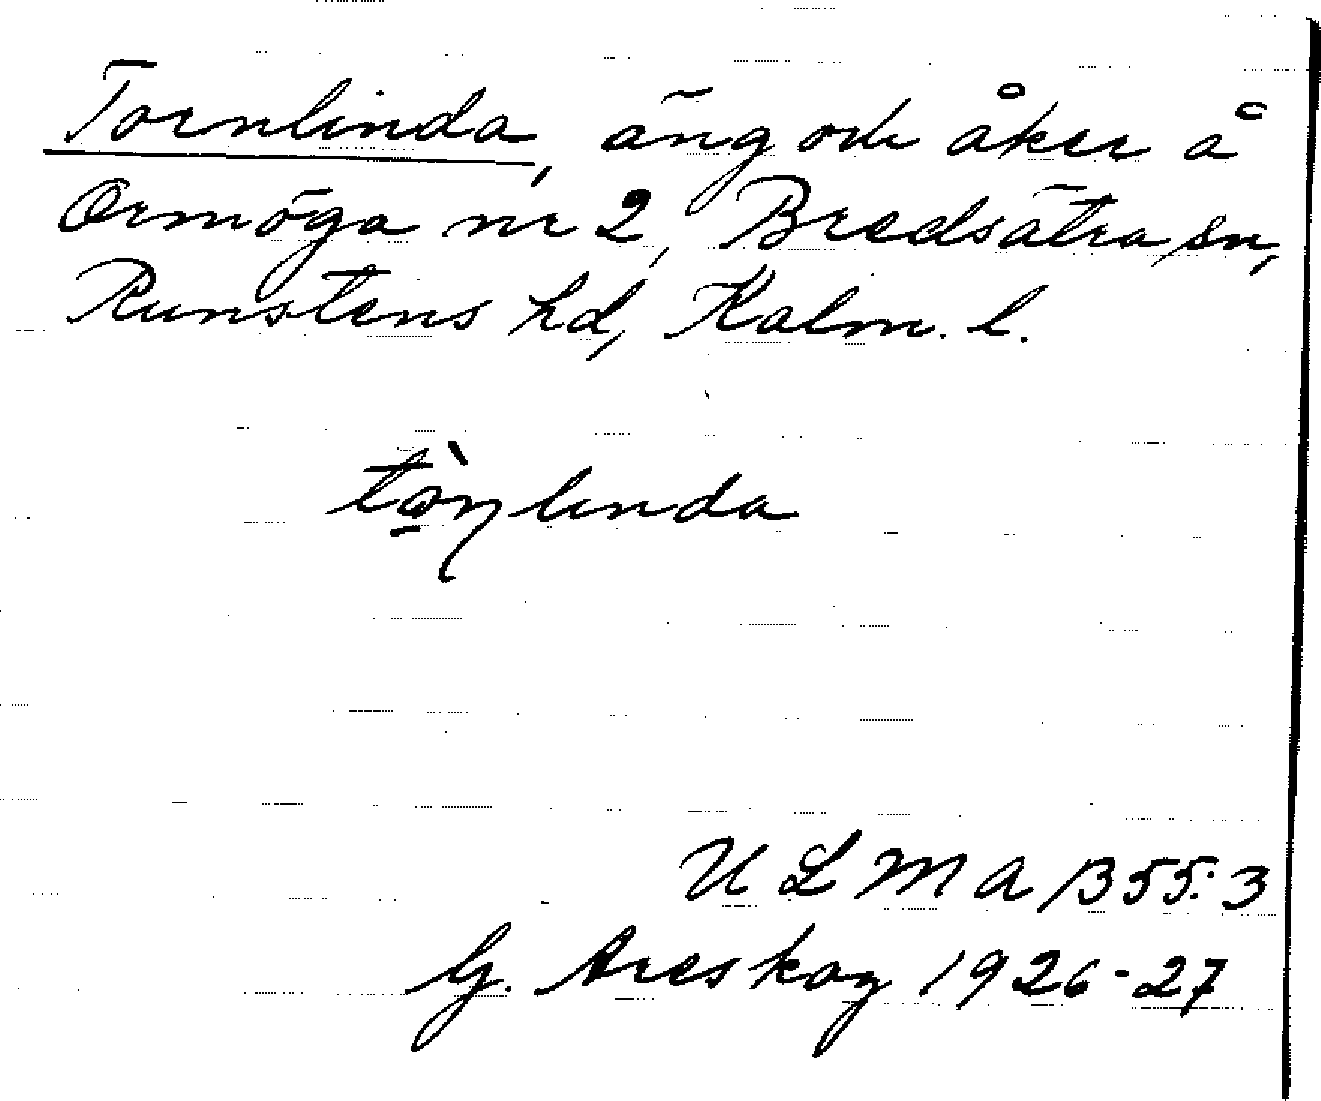 Tornlinda, äng och åker å
Ormöga nr 2, Bredsätra sn,
Runstens hd, Kalm. l.
tɷ̀ɳlinda
U L M A B 55:3
G. Areskog 1926-27